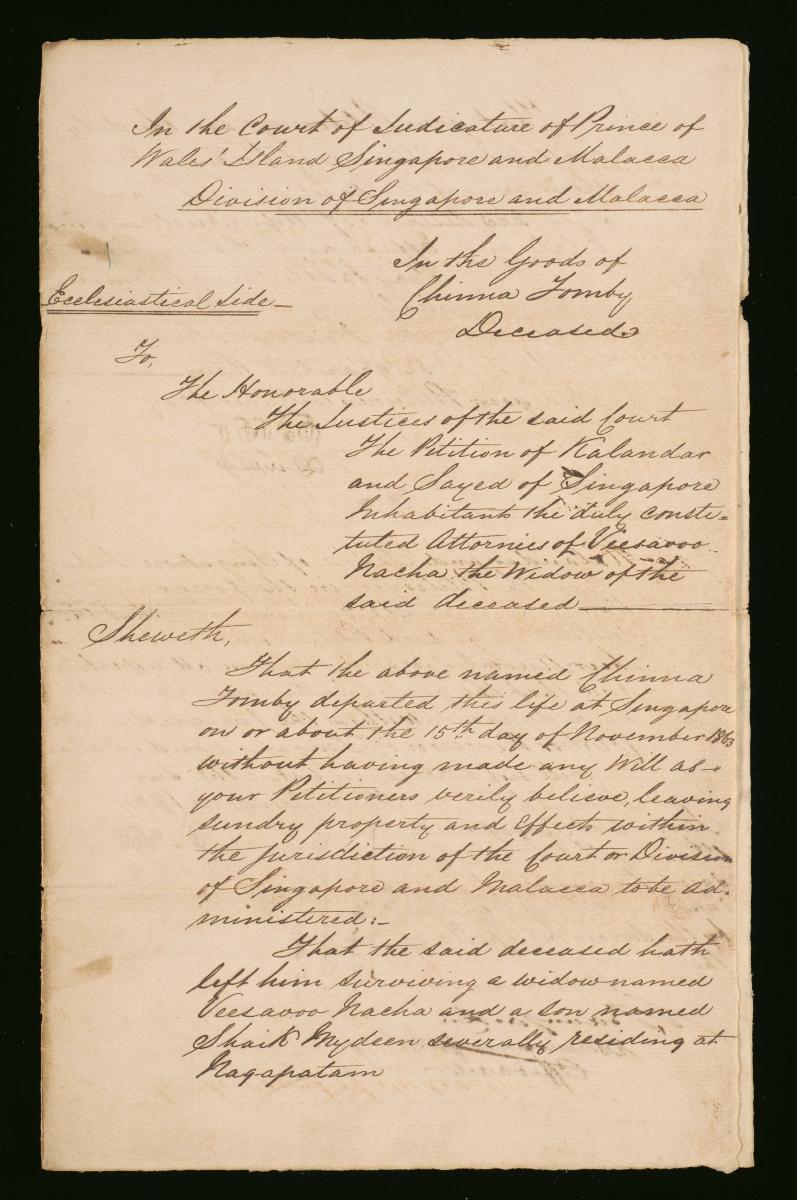 In the Court of Judicature of Prince of
Wales' Island Singapore and Malacca
Division of Singapore and Malacca
In the Goods of
Chinna Tomby
Deceased
Ecclesiastical Side
To,
The Honorable
The Justices of the said Court
The Petition of Kalandar
and Sayed of Singapore
Inhabitants the duly consti=
tuted Attornies of Veesavoo
Nacha the Widow of the
said deceased
Sheweth,
That the above named Chinna
Tomby departed this life at Singapore
on or about the 15th day of November 1863
without having made any Will as
your Petitioners verily believe, leaving
sundry property and Effects within
the jurisdiction of the Court or Division
of Singapore and Malacca to be ad=
ministered:-
That the said deceased hath
left him surviving a widow named
Veesavoo Nacha and a son named
Shaik Mydeen severally residing at
Nagapatam